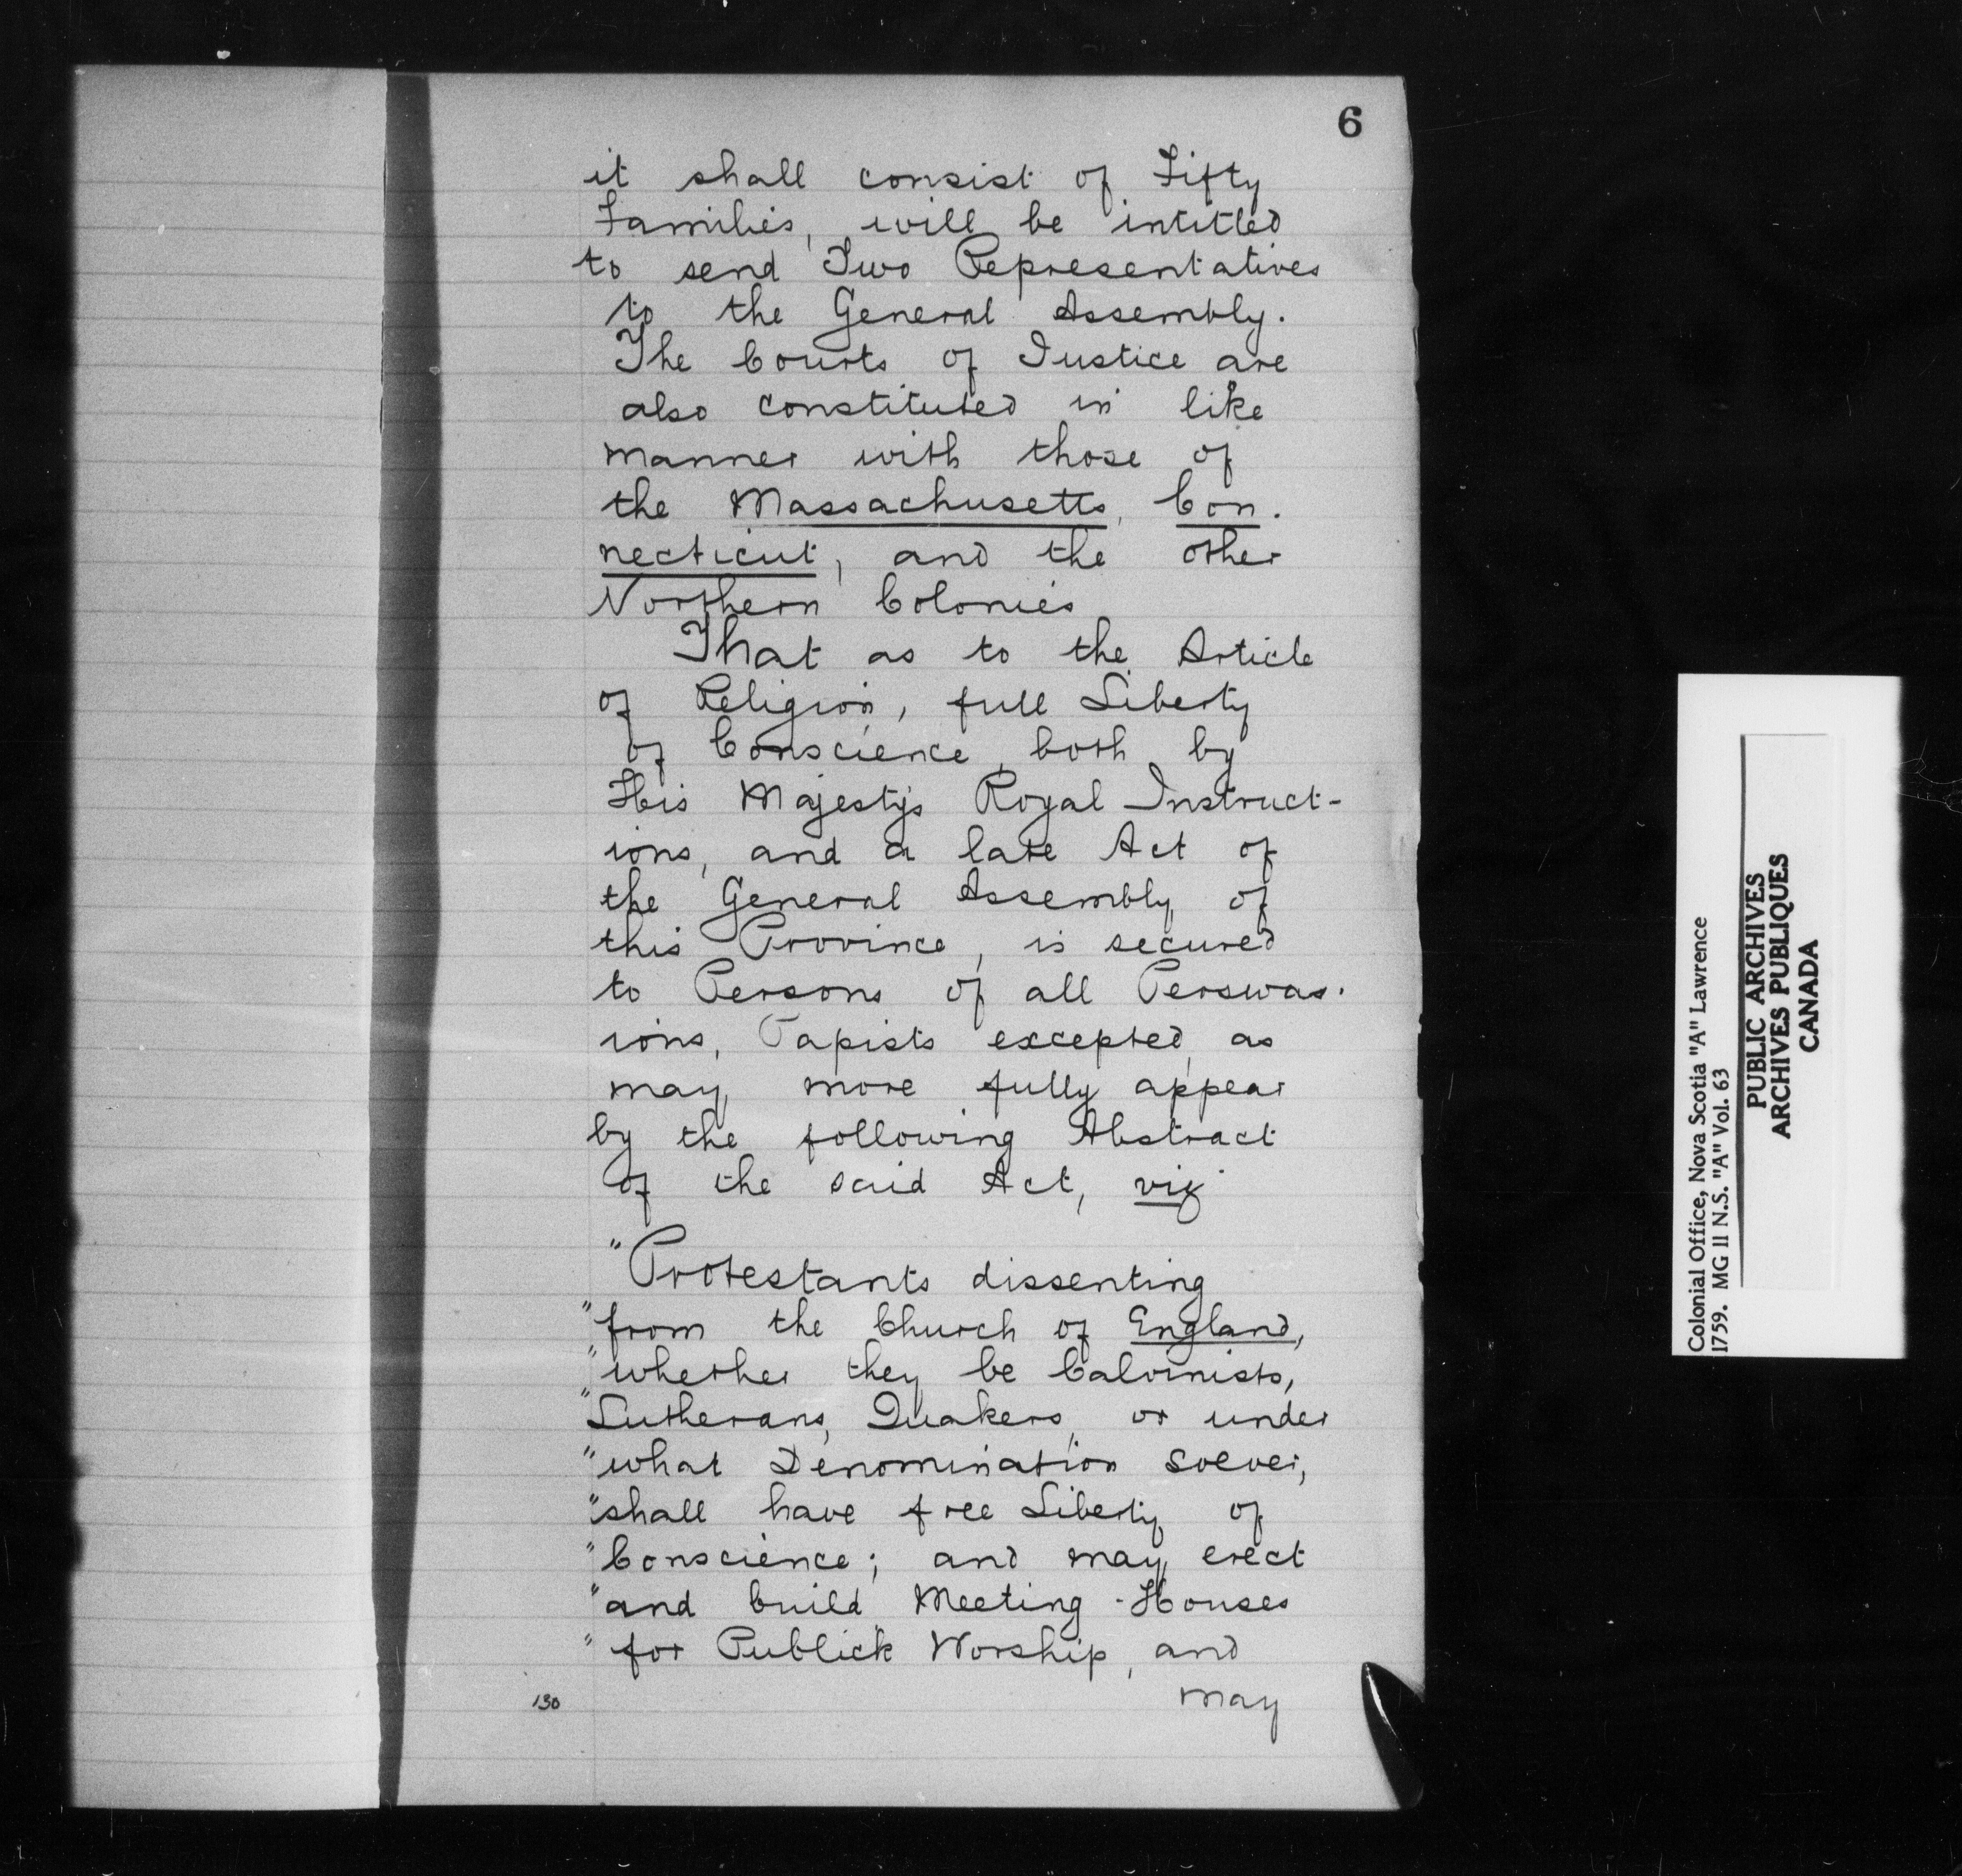 6
it shall consist of Fifty
Families, will be intitled
to send Two Representatives
to the General Assembly.
The Courts of Justice are
also constituted in like
manner with those of
the Massachusetts, Con-
necticut, and the other
Northern Colonies
That as to the Article
of Religion, full Liberty
of Conscience, both by
His Majesty's Royal Instruct-
ions, and a late Act of
the General Assembly of
this Province, is secured
to Persons of all Perswas-
ions, Papists excepted, as
may more fully appear
by the following Abstract
of the said Act, viz
"Protestants dissenting
"from the Church of England,
"whether they be Calvinists,
"Lutherans, Quakers, or under
"what Denomination soever,
"shall have free Liberty of
"Conscience; and may erect
"and build Meeting-Houses
"for Publick Worship, and
may
130
Colonial Office, Nova Scotia "A" Lawrence
1759. MG 11 N.S. "A" Vol. 63
PUBLIC ARCHIVES
ARCHIVES PUBLIQUES
CANADA